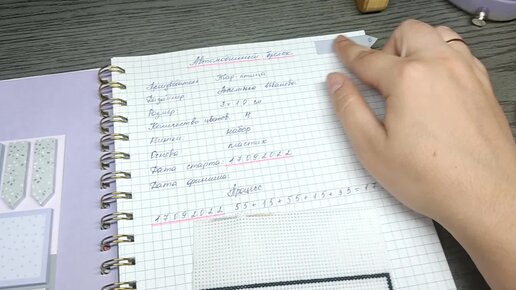 Автомобильный брелок
Производитель Жар птица
Дизайнер
Размер
Количество цветов
Нитки набор
Основа пластик
Дата старта 17.09.2022
Дата финиша
Процесс
17.09.2022 55+15+55+15+33=17